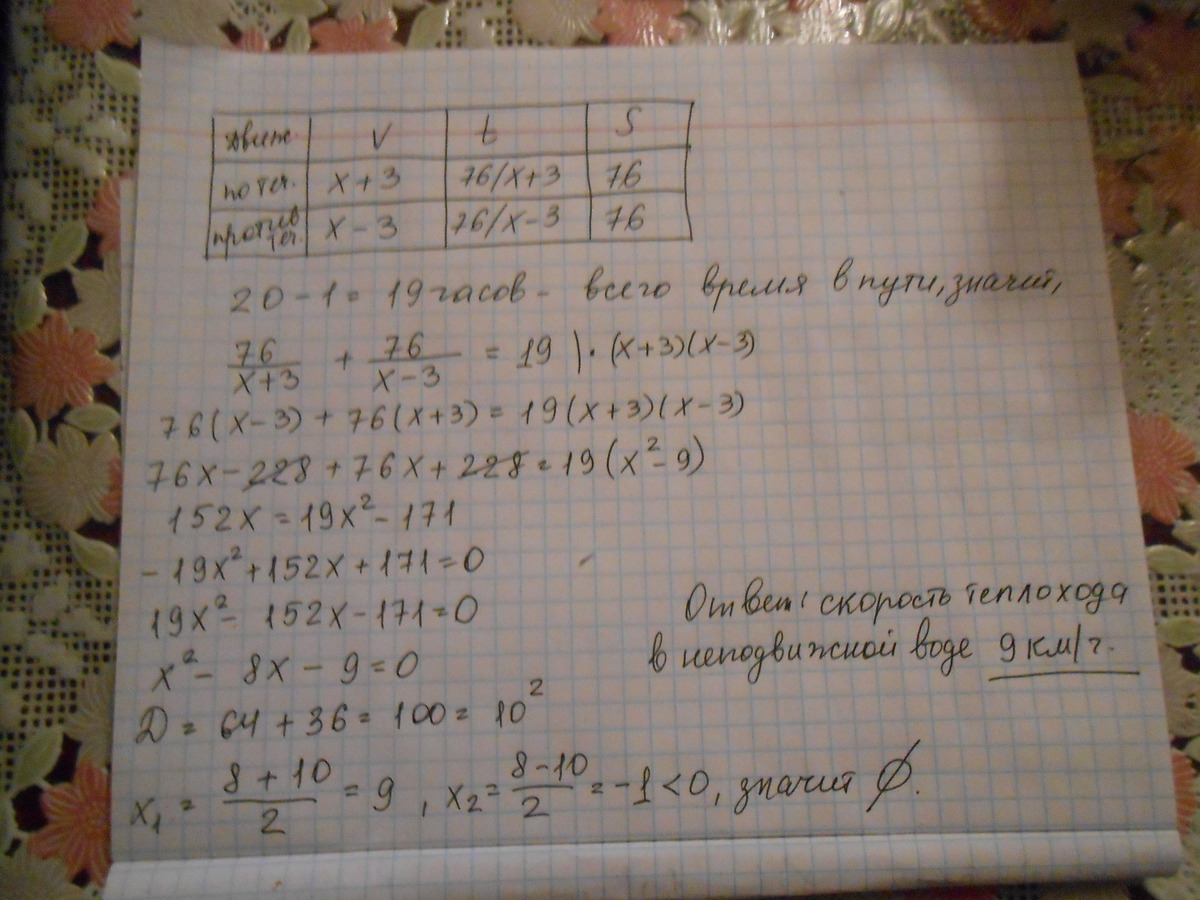 движ. V t S
по теч. x+3 76/x+3 76
против теч. x-3 76/x-3 76
20-1=19 часов - всего время в пути, значит,
76/x+3 + 76/x-3 = 19 | · (x+3)(x-3)
76(x-3)+76(x+3)=19(x+3)(x-3)
76x-228+76x+228=19(x²-9)
152x=19x²-171
-19x²+152x+171=0
19x²-152x-171=0
x²-8x-9=0
Д=64+36=100=10²
x₁=8+10/2=9, x₂=8-10/2=-1<0, значит ∅.
Ответ: скорость теплохода
в неподвижной воде 9 км/ч.